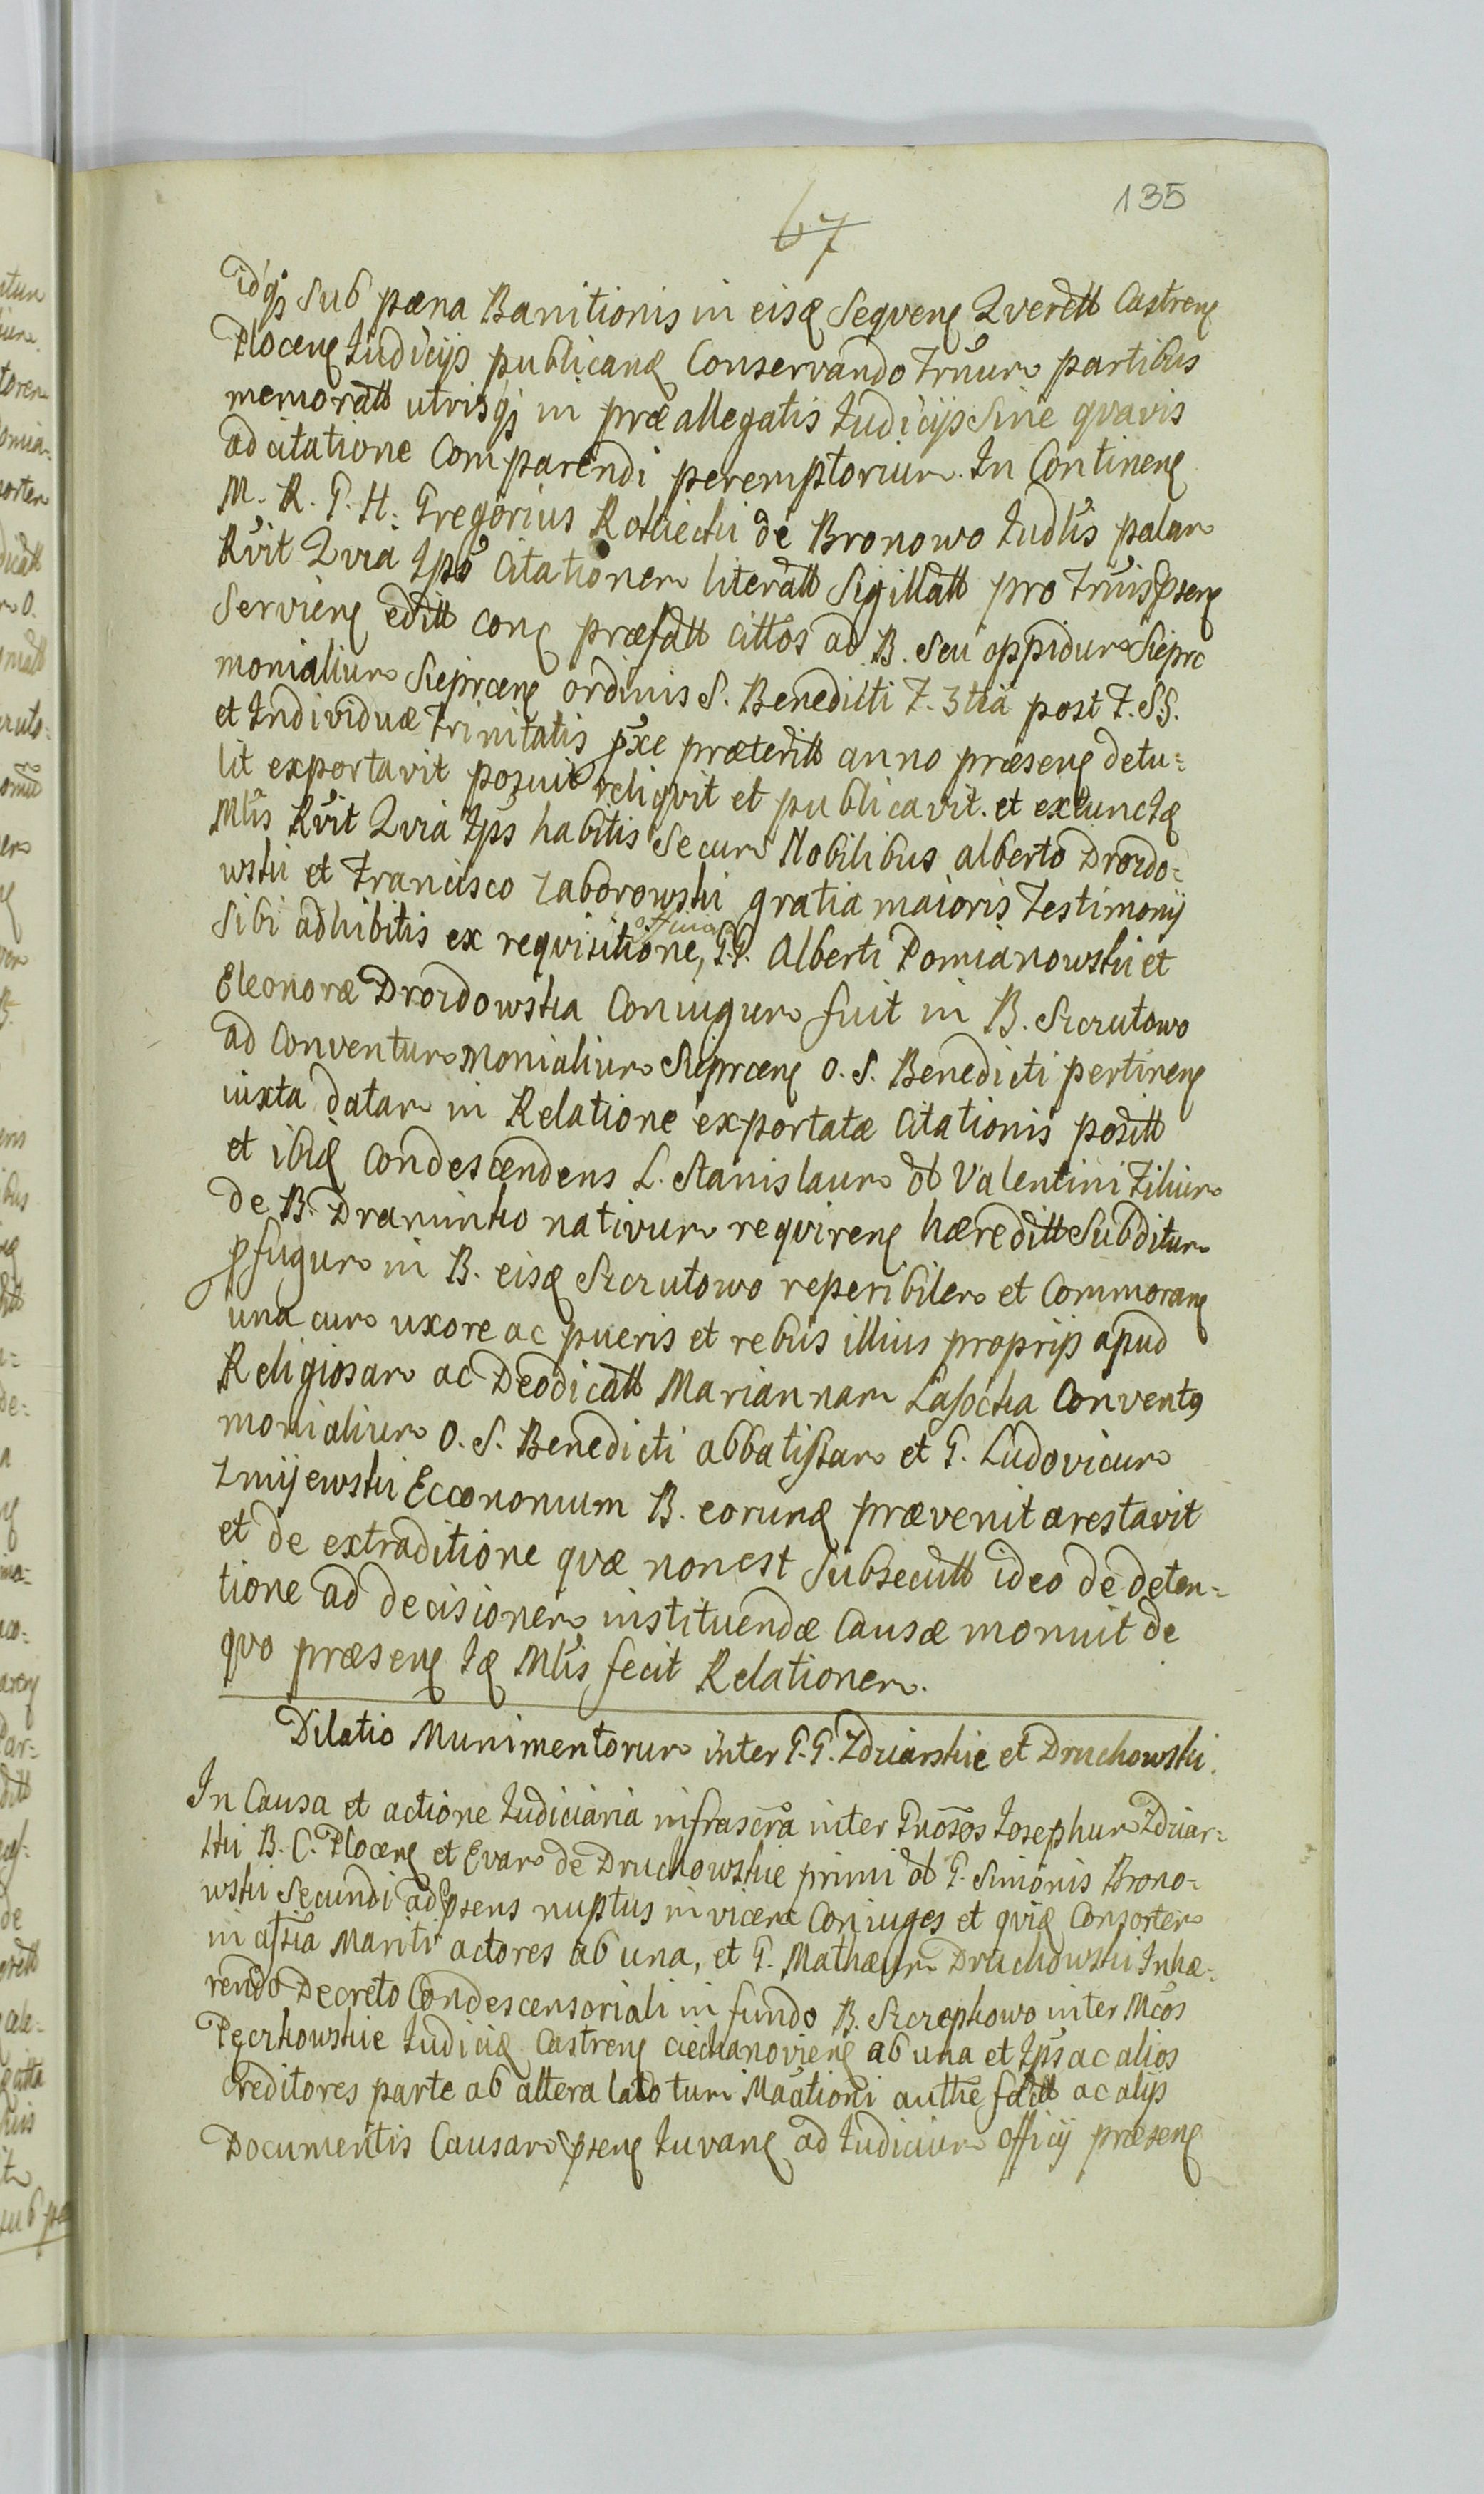 135
67
idq₃ sub pæna Banitionis in eisđ Seqvenę Qverełł Castrenę
Plocenę Judicijs publicanđ Conservando Trũum partibus
memorałł utrisq₃ in præallegatis Judicijs Sine qvavis
adcitatione Comparendi peremptorium. In Continenę
M. R. G. H. Gregorius Rościecki de Bronowo Judłis palam
Rũit Qvia Ipso Citationem literałł Sigillałł pro Trũis pseno
Servienę ediłł conę præfałł cittos ad B. seu oppidum Sieprc
monialium Sieprcenę ordinis S. Benedicti F. 3tia post F. SS.
et Individuæ Trinitatis pxe præteriłł anno præsenę detu=
lit exportavit posuit reliqvit et publicavit. et ex tunc Id
Mtis Rũit Qvia Ips habitis Secum Nobilibus Alberto Drozdo=
wski et Francisco Zaborowski gratia maioris Testimonij
Sibi adhibitis ex requisitione, G.G. Alberti Pomianowski et
Eleonoræ Drozdowska Coniugum fuit in B. Szczutowo
ad Conventum Monialium Sieprcenę O. S. Benedicti pertinenę
iuxta datam in Relatione exportatæ Citationis posiłł
et ibid Condescendens L. Stanislaum ol Valentini Filium
de B. Draminko nativum requirenę hærediłł Subditum
pfugum in B. eisđ Szczutowo reperibilem et Commoranę
una cum uxore ac pueris et rebus illius proprijs apud
Religiosam ac Deodicałł Mariannam Lasocka Conventus
monialium O. S. Benedicti abbatissam et G. Ludovicum
Zmijewski Ecconomum B. eorunđ prævenit arestavit
et de extraditione quæ non est Subsecułł ideo de deten=
tione ad decisionem instituendæ Causæ monuit de
quo præsenę Id Mtis fecit Relationem.
Dilatio Munimentorum inter G.G. Zdziarskie et Druchowski.
In Causa et actione Judiciaria infrascra inter Gnosos Josephum Zdziar=
ski B. C. Plocenę et Evam de Druchowskie primi ol G. Simonis Brono=
wski Secundi ad psens nuptus invicem Coniuges et qvid Consortem
in astia Mariti actores ab una, et G. Mathæum Druchowski Inhæ=
rendo Decreto Condescensoriali in fundo B. Szczepkowo inter Mcos
Pęczkowskie Judicid Castrenę Ciechanovienę ab una et Ips ac alios
Creditores parte ab altera lato tum Maationi authe facłł ac alijs
Documentis Causam psenę Juvanę ad Judicium officij præsenę